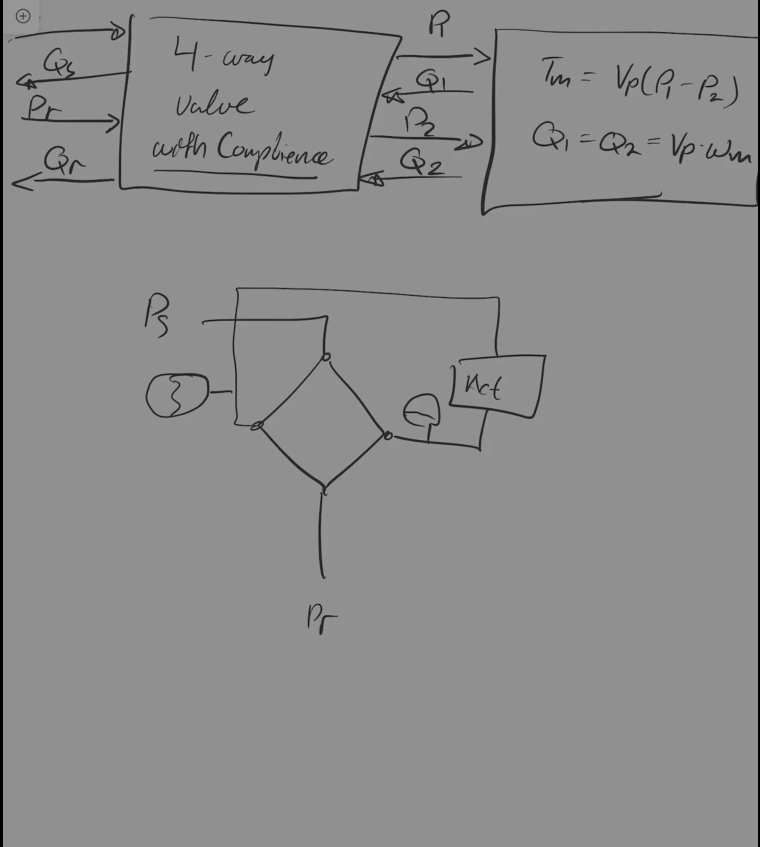 Qs
Pr
Qr
4-way
valve
with Complience
P1
Q1
P2
Q2
Tm = Vp(P1 - P2)
Q1 = Q2 = Vp·ωm
Ps
Act
Pr